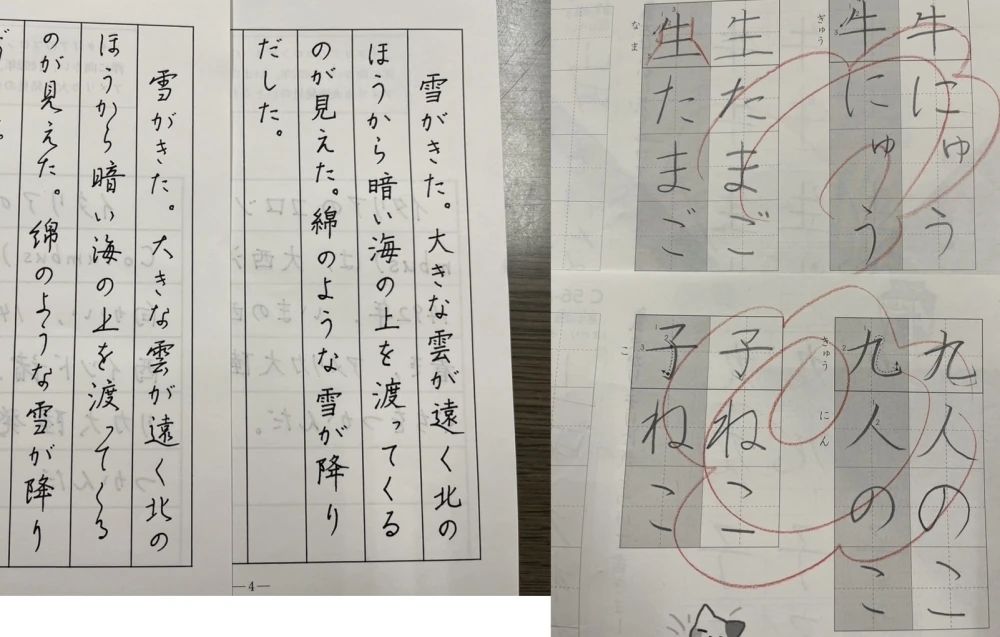 雪がきた。大きな雲が遠く北の
ほうから暗い海の上を渡ってくる
のが見えた。綿のような雪が降り
雪がきた。大きな雲が遠く北の
ほうから暗い海の上を渡ってくる
のが見えた。綿のような雪が降り
だした。
—4—
牛にゅう
牛にゅう
ぎゅう
生たまご
生たまご
なま
九人のこ
九人のこ
きゅう にん
子ねこ
子ねこ
こ